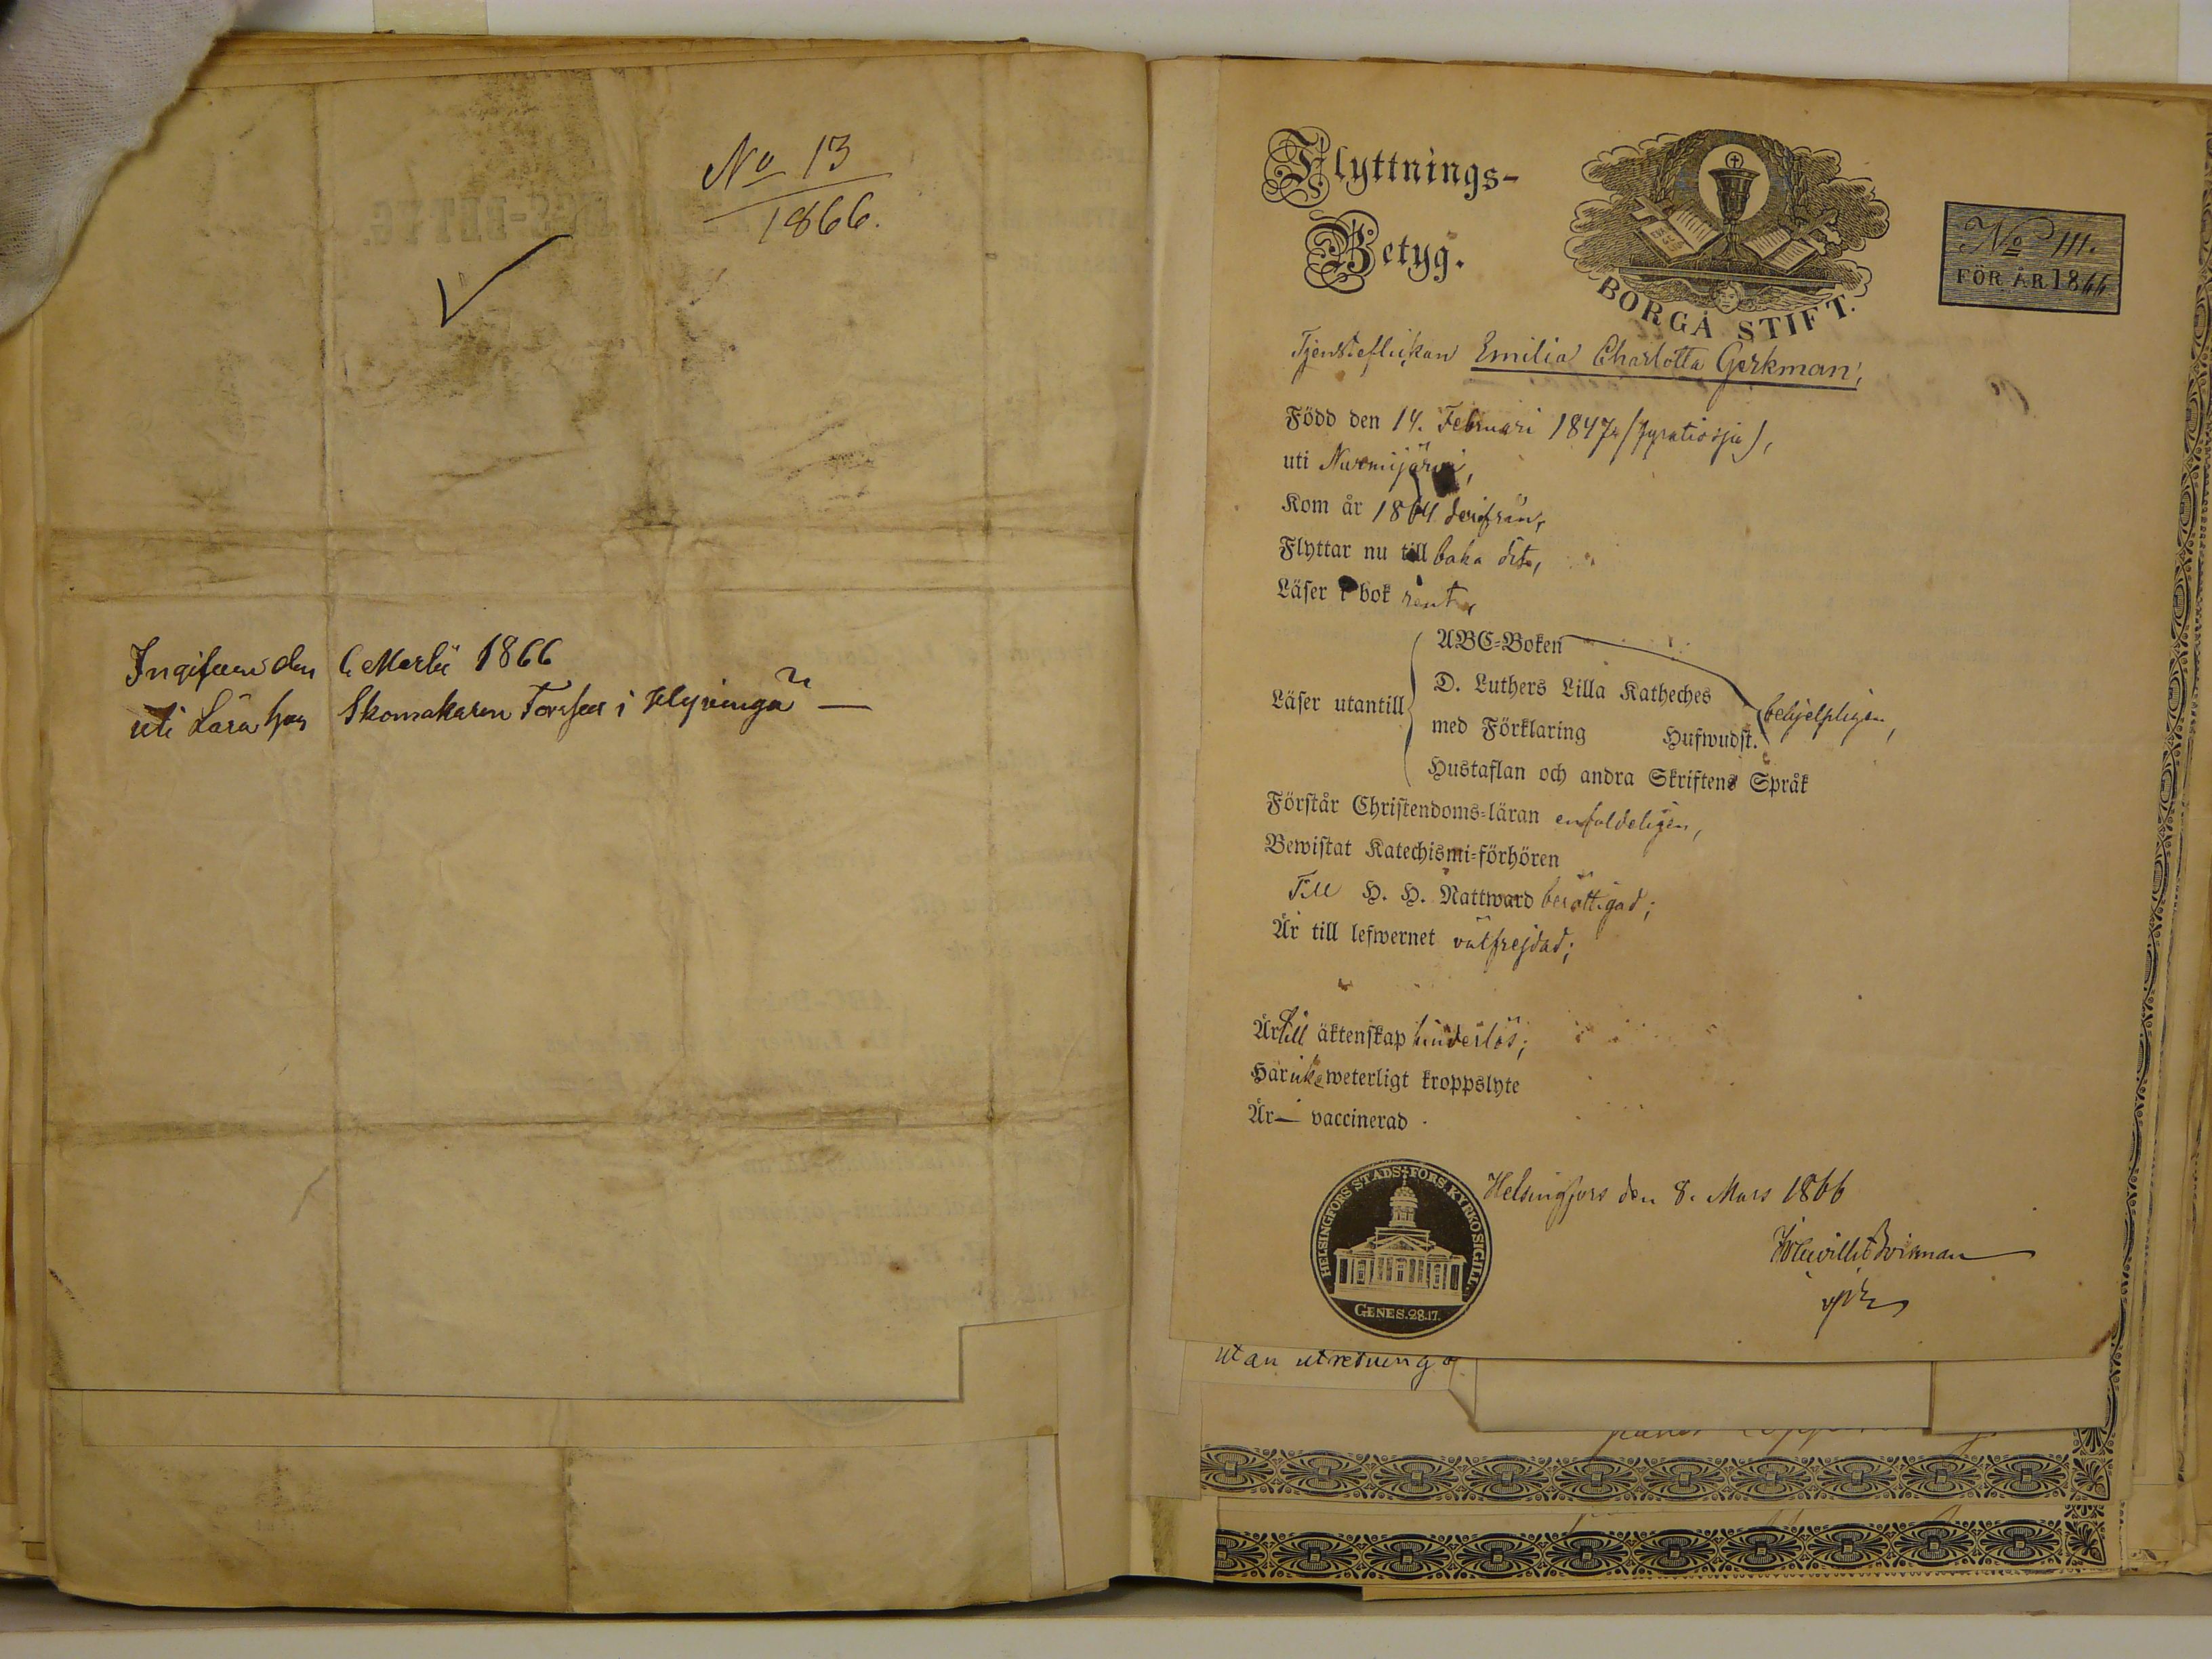 No 13
1866.
Ingifven den 6 Martii 1866
uti Lära hos Skomakaren Forsfors i Hyvinga
Flyttnings-
Betyg.
BORGÅ STIFT.
No 111.
FÖR ÅR 1866
Tjensteflickan Emilia Charlotta Gerkman,
Född den 14. Februari 1847 (fyratiosju),
uti Nurmijärvi,
Kom år 1864 derifrån,
Flyttar nu till baka dit,
Läser i bok rent,
Läser utantill
ABC-Boken
D. Luthers Lilla Katheches
med Förklaring Hufwudst.
behjelpligen,
Hustaflan och andra Skriftens Språk
Förstår Christendoms-läran enfaldeligen,
Bewistat Katechismi-förhören
Till H. H. Nattward berättigad;
Är till lefwernet välfrejdad;
Är till äktenskap hinderlös;
Har icke weterligt kroppslyte
Är — vaccinerad
HELSINGFORS STADS-FÖRS. KYRKOSIGILL.
GENES. 28.17.
Helsingfors den 8. Mars 1866
utan utredning